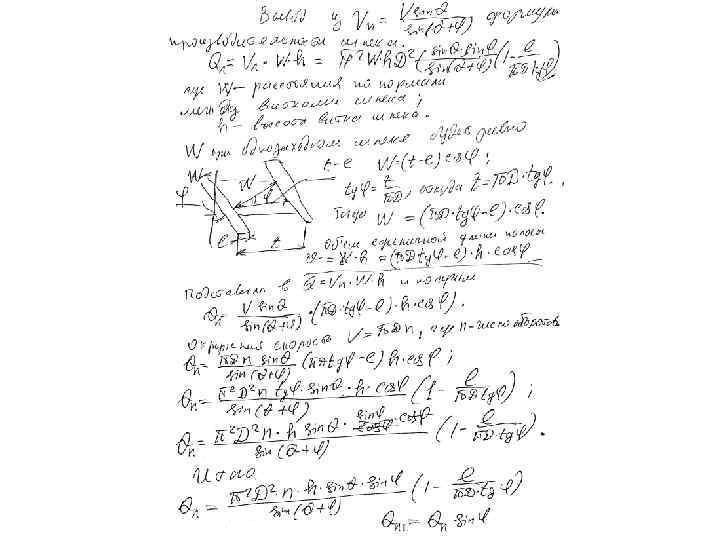 Вывод из Vп = V sinθ / sin(θ+φ) формулы
производительности шнека.
Qп = Vп · W·h = π²WhD² (sinθ·sinφ / sin(θ+φ)) (1 - e / πD tgφ)
где W – расстояния по нормали
между витками шнека;
h – высота витка шнека.
W при однозаходном шнеке будет равно
t-e W=(t-e) cosφ;
W W φ φ e t
tgφ = t / πD, откуда t = πD·tgφ.
Тогда W = (πD·tgφ-e)·cosφ.
Объем единичной длины полосы
= W·h = (πD tgφ-e)·h·cosφ
Подставим в Q = Vп·W·h и получим
Qп = V sinθ / sin(θ+φ) · (πD·tgφ-e)·h·cosφ.
Окружная скорость V = πDn, где n – число оборотов
Qп = πDn sinθ / sin(θ+φ) (πD tgφ-e) h·cosφ;
Qп = π²D²n tgφ·sinθ·h·cosφ / sin(θ+φ) (1 - e / πD·tgφ);
Qп = π²D²n·h sinθ · sinφ / cosφ · cosφ / sin(θ+φ) (1 - e / πD·tgφ).
Итого
Qп = π²D²·n·h·sinθ·sinφ / sin(θ+φ) (1 - e / πD·tgφ)
Qп₁ = Qп sinφ